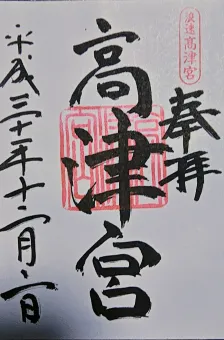 浪速高津宮
奉拝
高津宮
平成三十年十二月二日